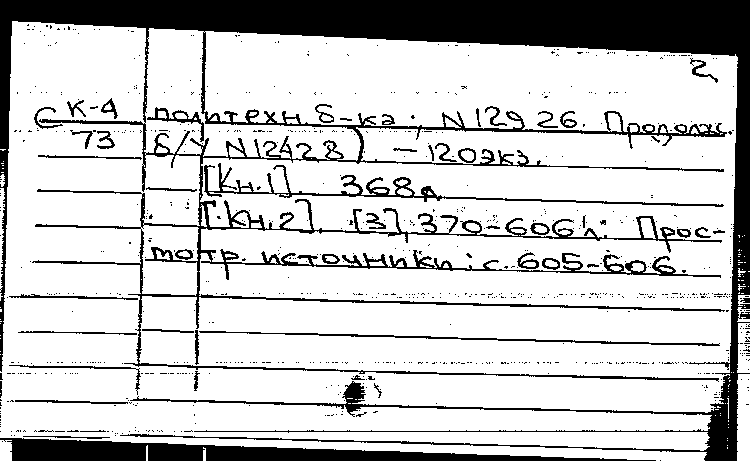 2
С К-4 политехн. б-ка; N 129 26. Продолж.
73 б/У N 12428) – 120экз.
[Кн.1]. 368л
[Кн.2]. [3], 370-606 л: Прос-
мотр. источники: с. 605-606.